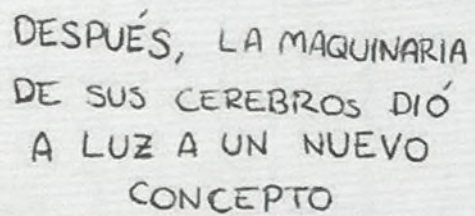 DESPUÉS, LA MAQUINARIA
DE SUS CEREBROS DIÓ
A LUZ A UN NUEVO
CONCEPTO